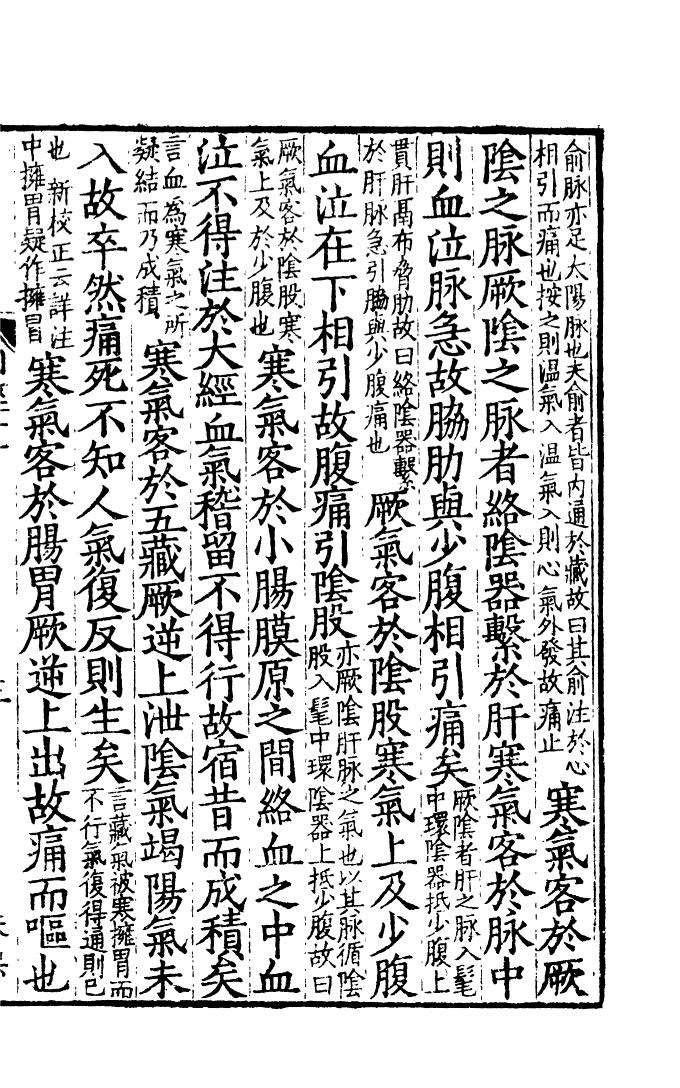 俞脉亦足太陽脉也夫俞者皆内通於藏故曰其俞注於心
相引而痛也按之則温氣入温氣入則心氣外發故痛止
寒氣客於厥
陰之脉厥陰之脉者絡陰器繫於肝寒氣客於脉中
則血泣脉急故脇肋與少腹相引痛矣
厥陰者肝之脉入髦
中環陰器抵少腹上
貫肝鬲布脅肋故曰絡陰器繫
於肝脉急引脇與少腹痛也
厥氣客於陰股寒氣上及少腹
血泣在下相引故腹痛引陰股
亦厥陰肝脉之氣也以其脉循陰
股入髦中環陰器上抵少腹故曰
厥氣客於陰股寒
氣上及於少腹也
寒氣客於小腸膜原之間絡血之中血
泣不得注於大經血氣稽留不得行故宿昔而成積矣
言血為寒氣之所
凝結而乃成積
寒氣客於五藏厥逆上泄陰氣竭陽氣未
入故卒然痛死不知人氣復反則生矣
言藏氣被寒擁胃而
不行氣復得通則已
也 新校正云詳注
中擁胃疑作擁冒
寒氣客於腸胃厥逆上出故痛而嘔也